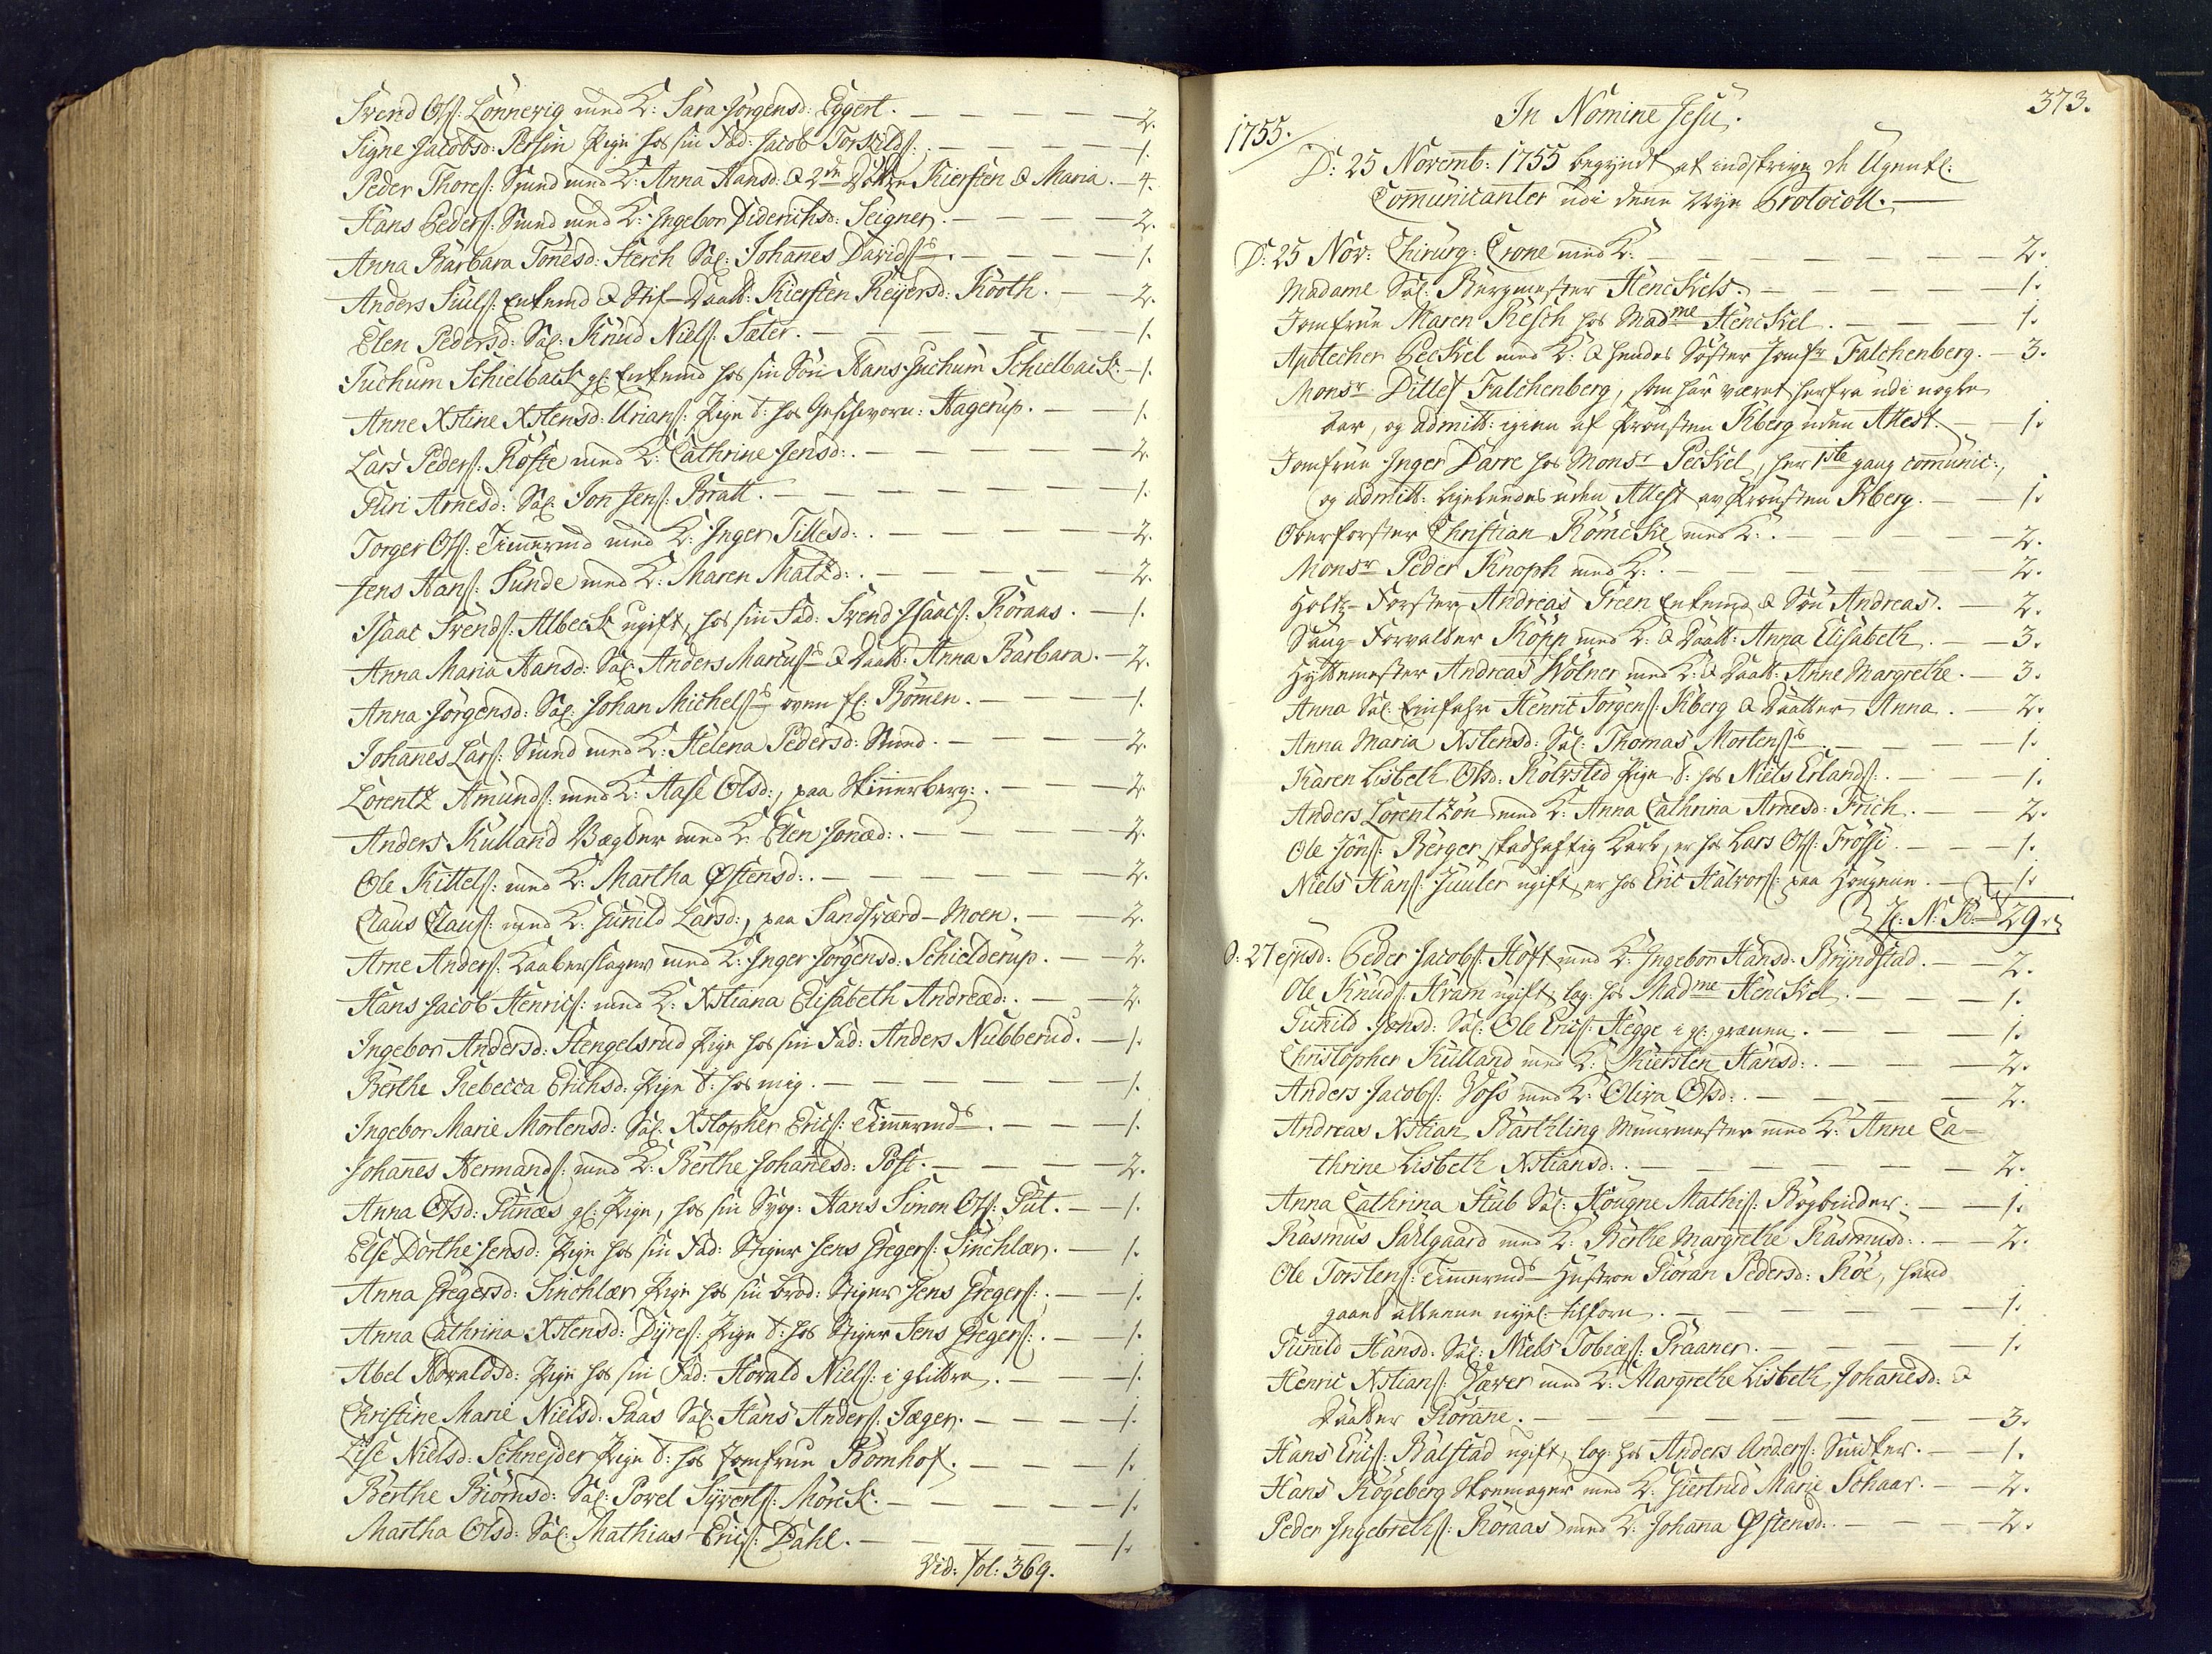 Svend Ols: Lönnevig med K: Sara Jörgensd: Eggert. — 2.
Signe Jacobsd: Persin Pige hos sin Fad: Jacob Torkilds: — 1.
Peder Thores: Smed med K: Anna Hansd: & 2de Döttre Kiersten & Maria. — 4.
Hans Peders: Smed med K: Ingebor Diderichsd: Seigner. — 2.
Anna Barbara Tönesd: Sterch Sal: Johanes Davids: — 1.
Anders Juuls: Enkemd & Stif-Daatt: Kiersten Reijersd: Kooth. — 2.
Elen Pedersd: Sal: Knud Niels: Sater. — 1.
Juchum Schielback gl: Enkemd hos sin Sön Hans Juchum Schielback — 1.
Anne Xstine Xstensd: Urians: Pige t: hos Geschworn: Hagerup. — 1.
Lars Peders: Röste med K: Cathrine Jensd: — 2.
Guri Arnesd: Sal: Jon Jens: Bratt. — 1.
Torger Ols: Timermd med K: Inger Tillesd: — 2.
Jens Hans: Sunde med K: Maren Matzd: — 2.
Isaac Svends: Albeck ugift, hos sin Fad: Svend Isaacs: Röraas. — 1.
Anna Maria Hansd: Sal: Anders Marcus: & Daatt: Anna Barbara. — 2.
Anna Jörgensd: Sal: Johan Michels: oven fl: Bömen. — 1.
Johanes Lars: Smed med K: Helena Pedersd: Smed. — 2.
Lorentz Amunds: med K: Aase Olsd:, paa Skinnerberg: — 2.
Anders Kulland Vægter med K: Elen Jonæd: — 2.
Ole Kittels: med K: Martha Østensd: — 2.
Claus Claus: med K: Gunild Larsd:, paa Sandsværd-Moen. — 2.
Arne Anders: Kaaberslager med K: Inger Jörgensd: Schielderup. — 2.
Hans Jacob Henrics: med K: Xstiana Elisabeth Andreæd: — 2.
Ingebor Andersd: Stengelsrud Pige hos sin Fad: Anders Nubberud. — 1.
Berthe Rebecca Erichsd: Pige t: hos mig. — 1.
Ingebor Marie Mortensd: Sal: Xstopher Erics: Timermds. — 1.
Johanes Hermands: med K: Berthe Johanesd: Post. — 2.
Anna Olsd: Funæs gl: Pige, hos sin Svog: Hans Simon Ols: Put. — 1.
Else Dorthe Jensd: Pige hos sin Fad: Stiger Jens Gregers: Sinchlær. — 1.
Anna Gregersd: Sinchlær Pige hos sin Brod: Stiger Jens Gregers: — 1.
Anna Cathrina Xstensd: Dyres: Pige t: hos Stiger Jens Gregers: — 1.
Abel Horaldsd: Pige hos sin Fad: Horald Niels: i glittre. — 1.
Christine Marie Nielsd: Gaas Sal: Hans Anders: Jæger. — 1.
Lise Nielsd: Schneider Pige t: hos Jomfrue Bornhof. — 1.
Berthe Biörnsd: Sal: Povel Syverts: Mörck. — 1.
Martha Olsd: Sal: Mathias Erics: Dahl. — 1.
Vid: fol: 369.
373.
In Nomine Jesu.
1755.
D: 25 Novemb: 1755 begyndt at indskrive de Ugentl:
Communicanter udi denne Nye Protocoll.
D: 25 Nov: Chirurg: Crone med K: — 2.
Madame Sal: Bergmester Henckels. — 1.
Jomfrue Maren Resch hos Madme Henckel. — 1.
Apotecher Peckel med K: & hendes Söster Jomfr Falchenberg. — 3.
Monsr Ditlef Falchenberg, som har været herfra udi nogle
Aar, og admitt: igien af Provsten Kberg uden Attest. — 1.
Jomfrue Inger Darre hos Monsr Peckel, her 1ste gang comunic:,
og admitt: ligeledes uden Attest av Provsten Kberg. — 1.
Oberforster Christian Römcke med K: — 2.
Monsr Peder Knoph med K: — 2.
Holtz-Forster Andreas Green Enkemd & Sön Andreas. — 2.
Saug-Forvalter Köpp med K: & Daatt: Anna Elisabeth. — 3.
Hyttemester Andreas Wölner med K: & Daatt: Anne Margrethe. — 3.
Anna Sal: Einfahr Henric Jörgens: Kberg & Daatter Anna. — 2.
Anna Maria Xstensd: Sal: Thomas Mortens: — 1.
Karen Lisbeth Olsd: Rolvsted Pige t: hos Niels Erlands: — 1.
Anders Lorentzön med K: Anna Cathrina Arnesd: Frich. — 2.
Ole Jons: Berger stadhaftig Karl, er hos Lars Ols: Frössi. — 1.
Niels Hans: Juuler ugift, er hos Eric Halvors: paa Hougene. — 1.
29.
D: 27 ejusd: Peder Jacobs: Hoft med K: Ingebor Hansd: Bryndstad. — 2.
Ole Knuds: Hvam ugift log: hos Madme Henckel. — 1.
Gunild Jonsd: Sal: Ole Erics: Hegge i gl: grænen. — 1.
Christopher Kulland med K: Kiersten Hansd: — 2.
Anders Jacobs: Voss med K: Oliva Olsd: — 2.
Andreas Xstian Barthling Muurmester med K: Anne Ca-
thrine Lisbeth Xstiansd: — 2.
Anna Cathrina Stub Sal: Hougne Mathis: Bogbinder. — 1.
Rasmus Dahlgaard med K: Berthe Margrethe Rasmusd: — 2.
Ole Torstens: Timermds Hustroe Gioran Pedersd: Röe, hand
gaaet allene nyel: tilforn. — 1.
Gunild Hansd: Sal: Niels Tobiæs: Graaner. — 1.
Henric Xstians: Væver med K: Margrethe Lisbeth Johanesd: &
Daatter Gorane. — 3.
Hans Erics: Balstad ugift, log: hos Anders Anders: Snedker. — 1.
Hans Kogeberg Skoemager med K: Giertrud Marie Schaar. — 2.
Peder Ingebreths: Röraas med K: Johana Østensd: — 2.